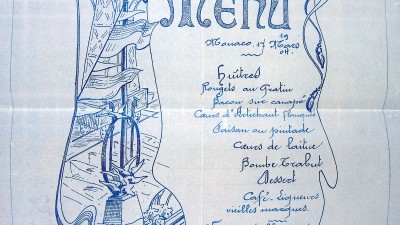 MENU
Monaco, 17 Mars
19
04.
Huîtres
Rougets au Gratin
Bacon sur canapé
Cœurs d'Artichaut
Faisan ou pintade
Cœurs de laitue
Bombe Trabut
Dessert
Café. Liqueurs
vieilles marques.